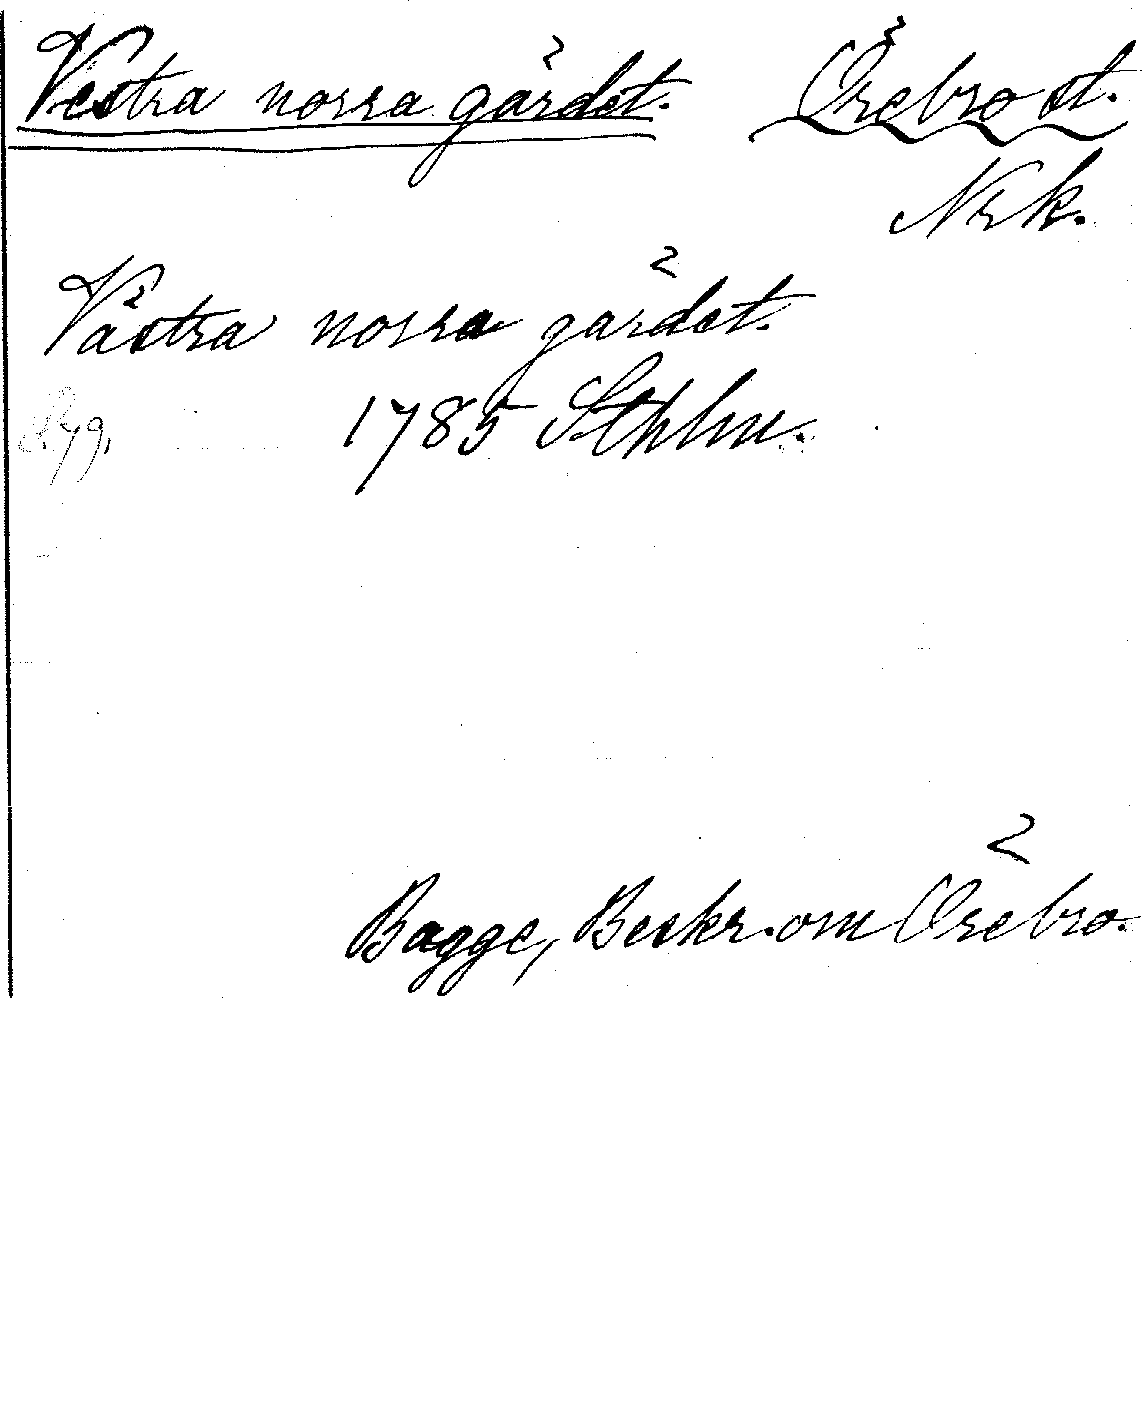 Vestra norra gärdet. Örebro st.
Nrk.
Västra norra gärdet.
S. 79. 1785 Sthlm.
Bagge, Beskr. om Örebro.